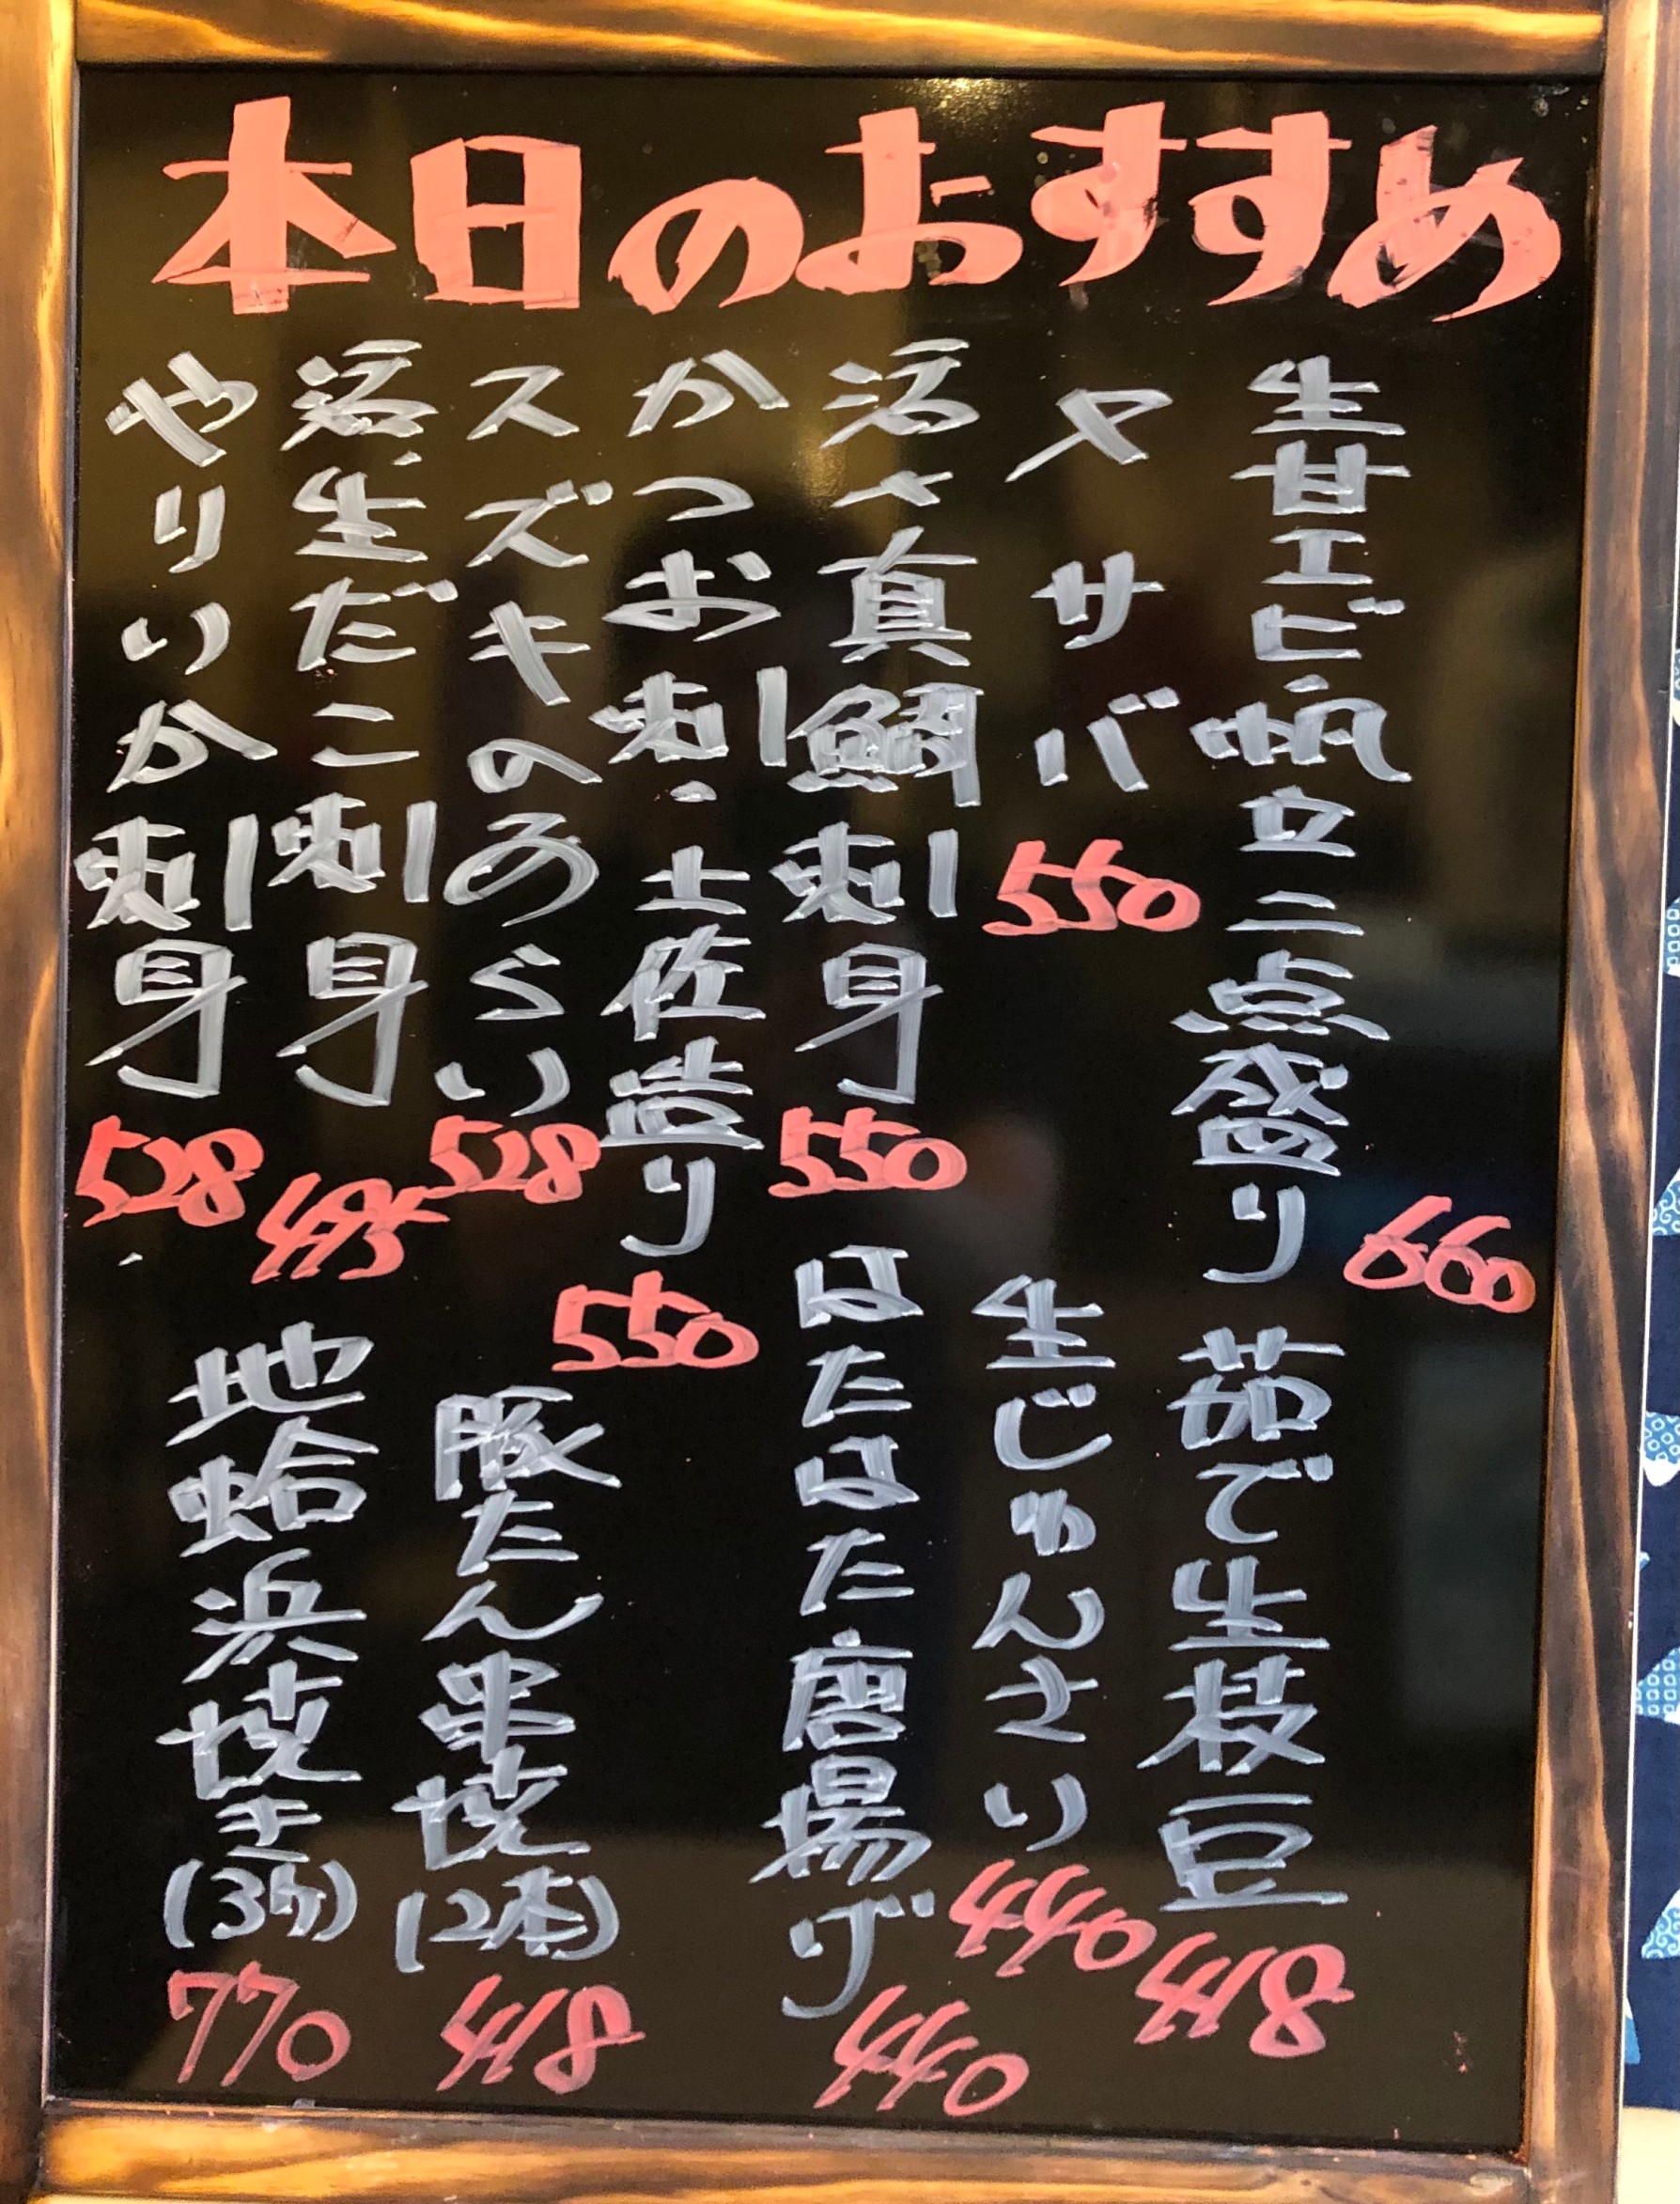 本日のおすすめ
生甘エビ・帆立二点盛り 660
〆サバ 550
活〆真鯛刺身 550
かつお刺・土佐造り 550
スズキのあらい 528
活〆生だこ刺身 495
やりいか刺身 528
茹で生枝豆 418
生じゅんさい 440
はたはた唐揚げ 440
豚たん串焼(2本) 418
地蛤浜焼き(3ケ) 770